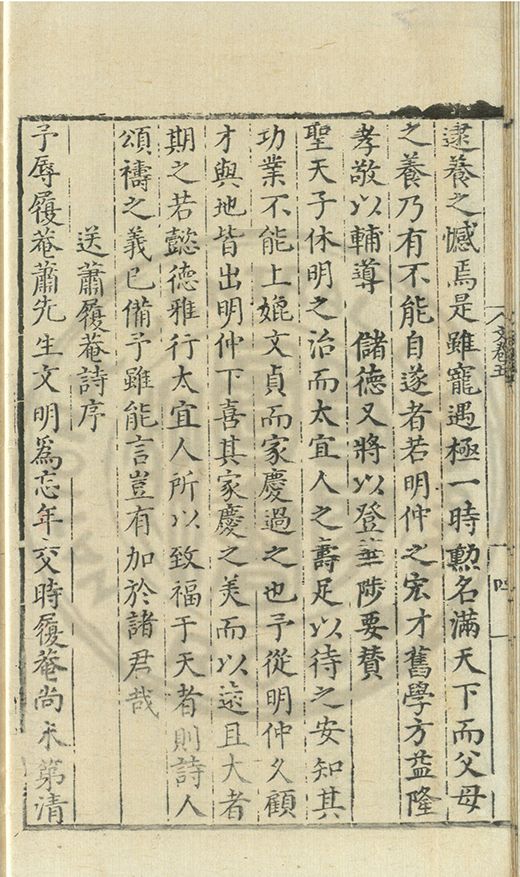 逮養之憾焉是雖寵遇極一時勲名滿天下而父母
之養乃有不能自遂者若明仲之宏才舊學方益隆
孝敬以輔導　儲德又將以登華陟要賛
聖天子休明之治而太宜人之壽足以待之安知其
功業不能上媲文貞而家慶過之也予從明仲久顧
才與地皆出明仲下喜其家慶之美而以遠且大者
期之若懿德雅行太宜人所以致福于天者則詩人
頌禱之義已備予雖能言豈有加於諸君哉
送蕭履菴詩序
予辱履菴蕭先生文明爲忘年交時履菴尚未第清
文卷五
四